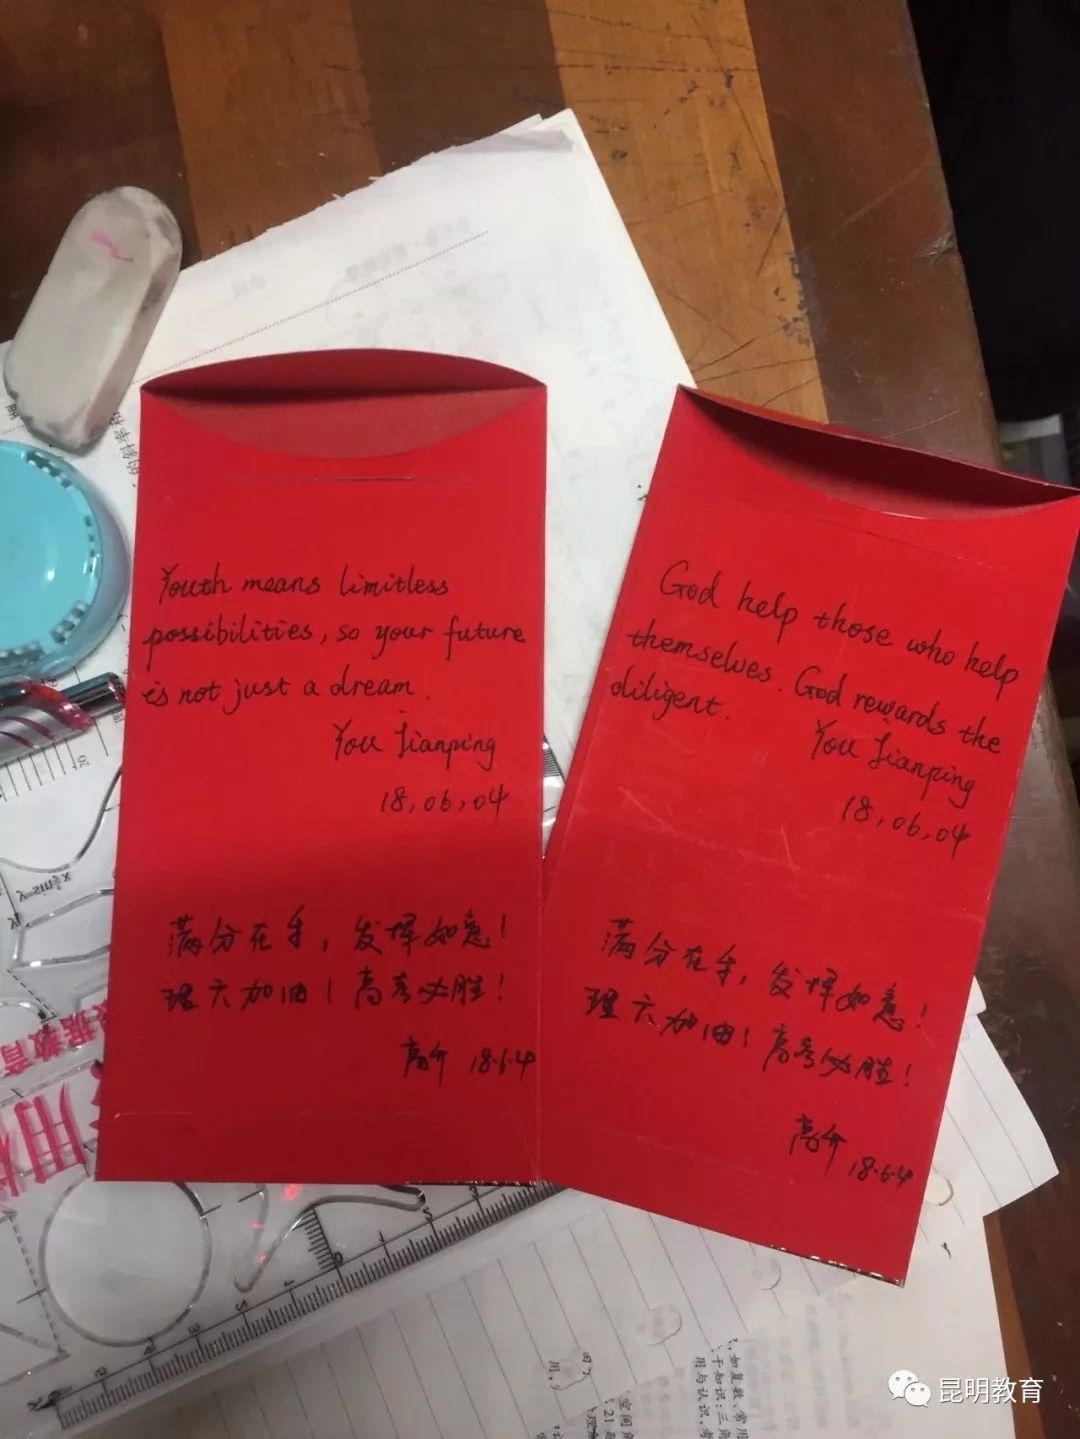 Youth means limitless
possibilities, so your future
is not just a dream.
You Jianping
18,06,04
满分在手，发挥如意！
理六加油！高考必胜！
18.6.4
God help those who help
themselves. God rewards the
diligent.
You Jianping
18,06,04
满分在手，发挥如意！
理六加油！高考必胜！
18.6.4
昆明教育